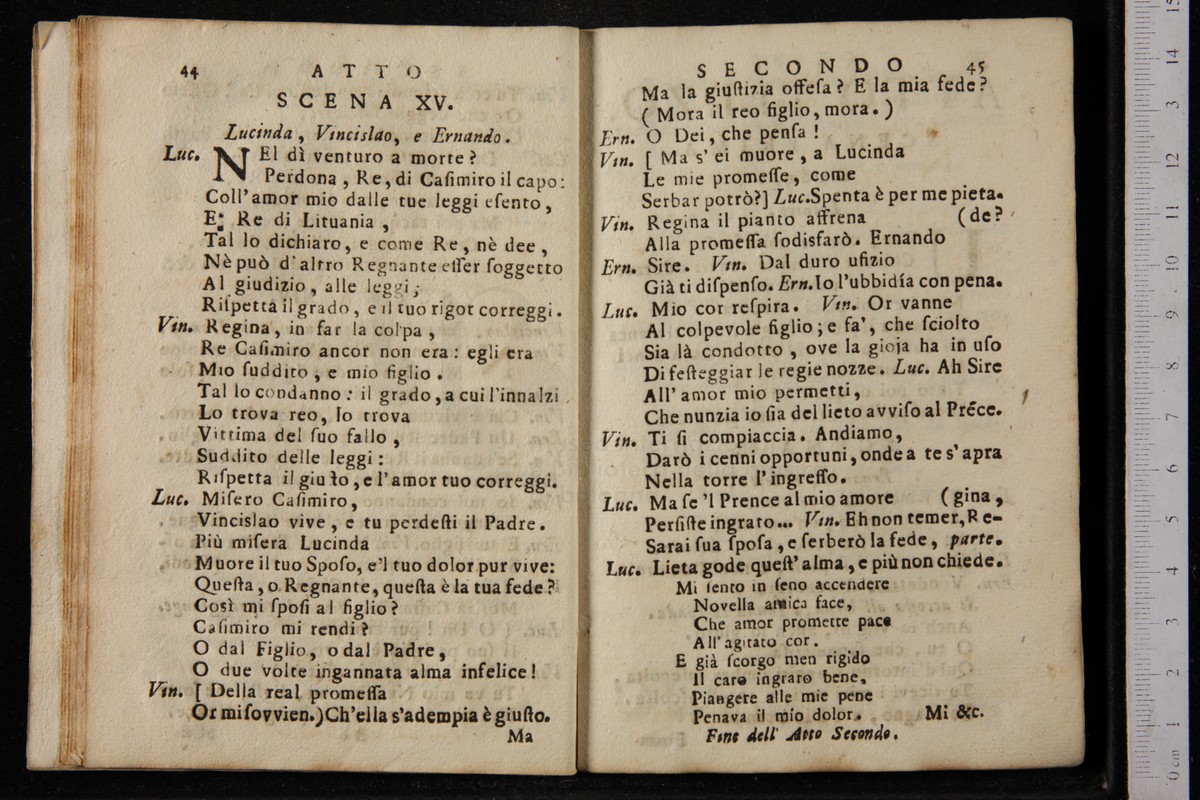 44 ATTO
SCENA XV.
Lucinda, Vincislao, e Ernando.
Luc. NEl dì venturo a morte?
Perdona, Re, di Caſimiro il capo:
Coll'amor mio dalle tue leggi eſento,
E' Re di Lituania,
Tal lo dichiaro, e come Re, nè dee,
Nè può d'altro Regnante eſſer ſoggetto
Al giudizio, alle leggi;
Riſpetta il grado, e il tuo rigor correggi.
Vin. Regina, in far la colpa,
Re Caſimiro ancor non era: egli era
Mio ſuddito, e mio figlio.
Tal lo condanno: il grado, a cui l'innalzi
Lo trova reo, lo trova
Vittima del ſuo fallo,
Suddito delle leggi:
Riſpetta il giuſto, e l'amor tuo correggi.
Luc. Miſero Caſimiro,
Vincislao vive, e tu perdeſti il Padre.
Più miſera Lucinda
Muore il tuo Spoſo, e'l tuo dolor pur vive:
Queſta, o Regnante, queſta è la tua fede?
Così mi ſpoſi al figlio?
Caſimiro mi rendi?
O dal Figlio, o dal Padre,
O due volte ingannata alma infelice!
Vin. [ Della real promeſſa
Or mi ſovvien.) Ch'ella s'adempia è giuſto.
Ma
SECONDO 45
Ma la giuſtizia offeſa? E la mia fede?
( Mora il reo figlio, mora. )
Ern. O Dei, che penſa!
Vin. [ Ma s' ei muore, a Lucinda
Le mie promeſſe, come
Serbar potrò?] Luc. Spenta è per me pieta-
Vin. Regina il pianto affrena (de?
Alla promeſſa ſodisfarò. Ernando
Ern. Sire. Vin. Dal duro ufizio
Già ti diſpenſo. Ern. Io l'ubbidía con pena.
Luc. Mio cor reſpira. Vin. Or vanne
Al colpevole figlio; e fa', che ſciolto
Sia là condotto, ove la gioja ha in uſo
Di feſteggiar le regie nozze. Luc. Ah Sire
All' amor mio permetti,
Che nunzia io ſia del lieto avviſo al Préce.
Vin. Ti ſi compiaccia. Andiamo,
Darò i cenni opportuni, onde a te s' apra
Nella torre l' ingreſſo.
Luc. Ma ſe 'l Prence al mio amore (gina,
Perſiſte ingrato... Vin. Eh non temer, Re-
Sarai ſua ſpoſa, e ſerberò la fede, parte.
Luc. Lieta gode queſt' alma, e più non chiede.
Mi ſento in ſeno accendere
Novella amica face,
Che amor promette pace
All' agitato cor.
E già ſcorgo men rigido
Il caro ingrato bene,
Piangere alle mie pene
Penava il mio dolor. Mi &c.
Fine dell' Atto Secondo.